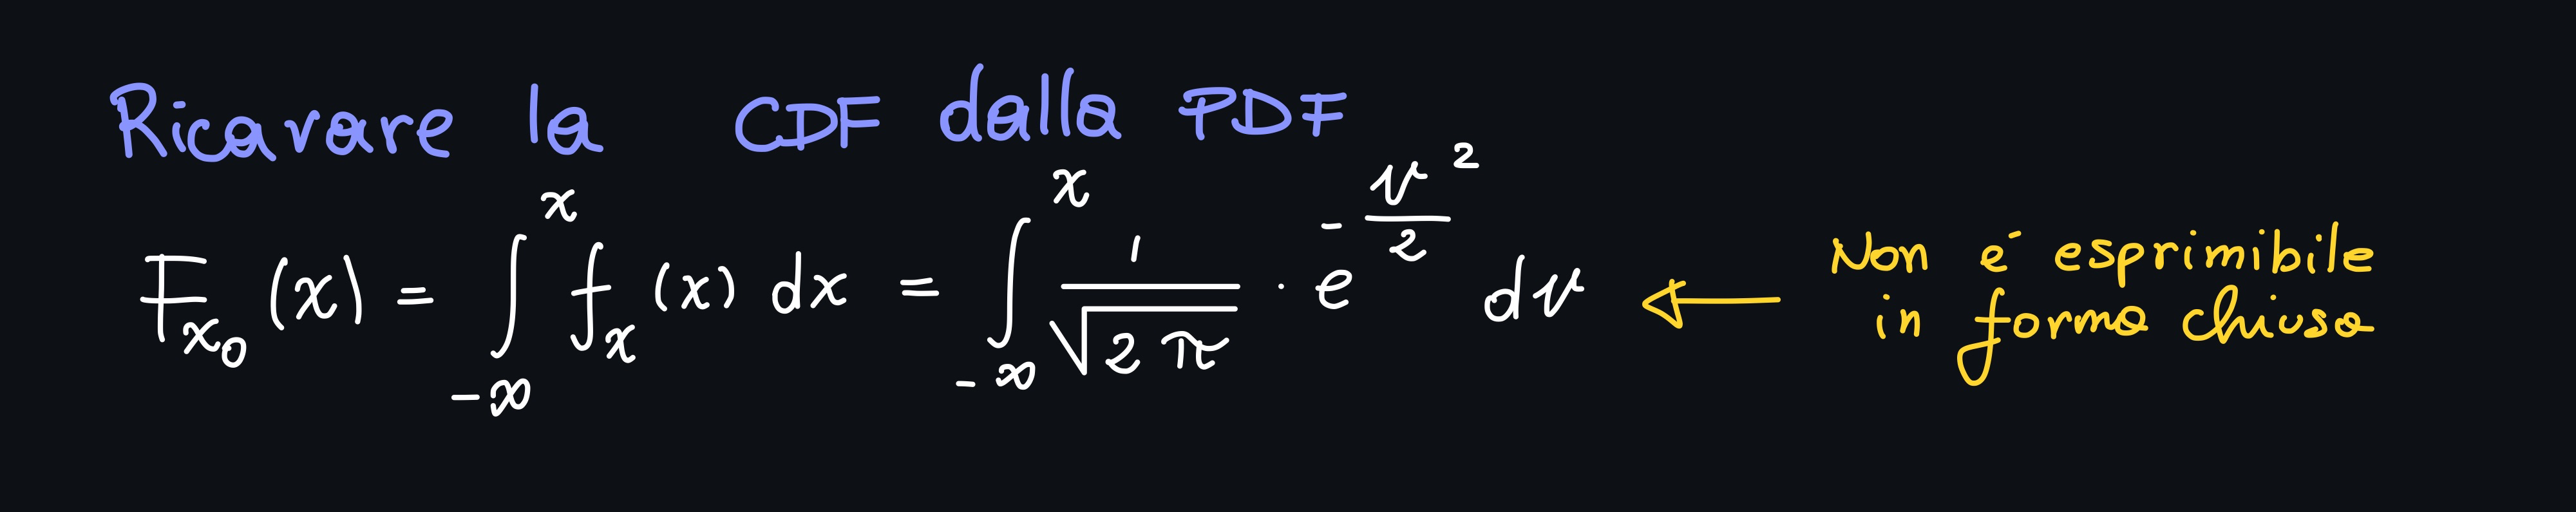 Ricavare la CDF dalla PDF
F_{x_0}(x) = \int_{-\infty}^{x} f_x(x) dx = \int_{-\infty}^{x} \frac{1}{\sqrt{2\pi}} \cdot e^{-\frac{v^2}{2}} dv
Non é esprimibile
in forma chiusa